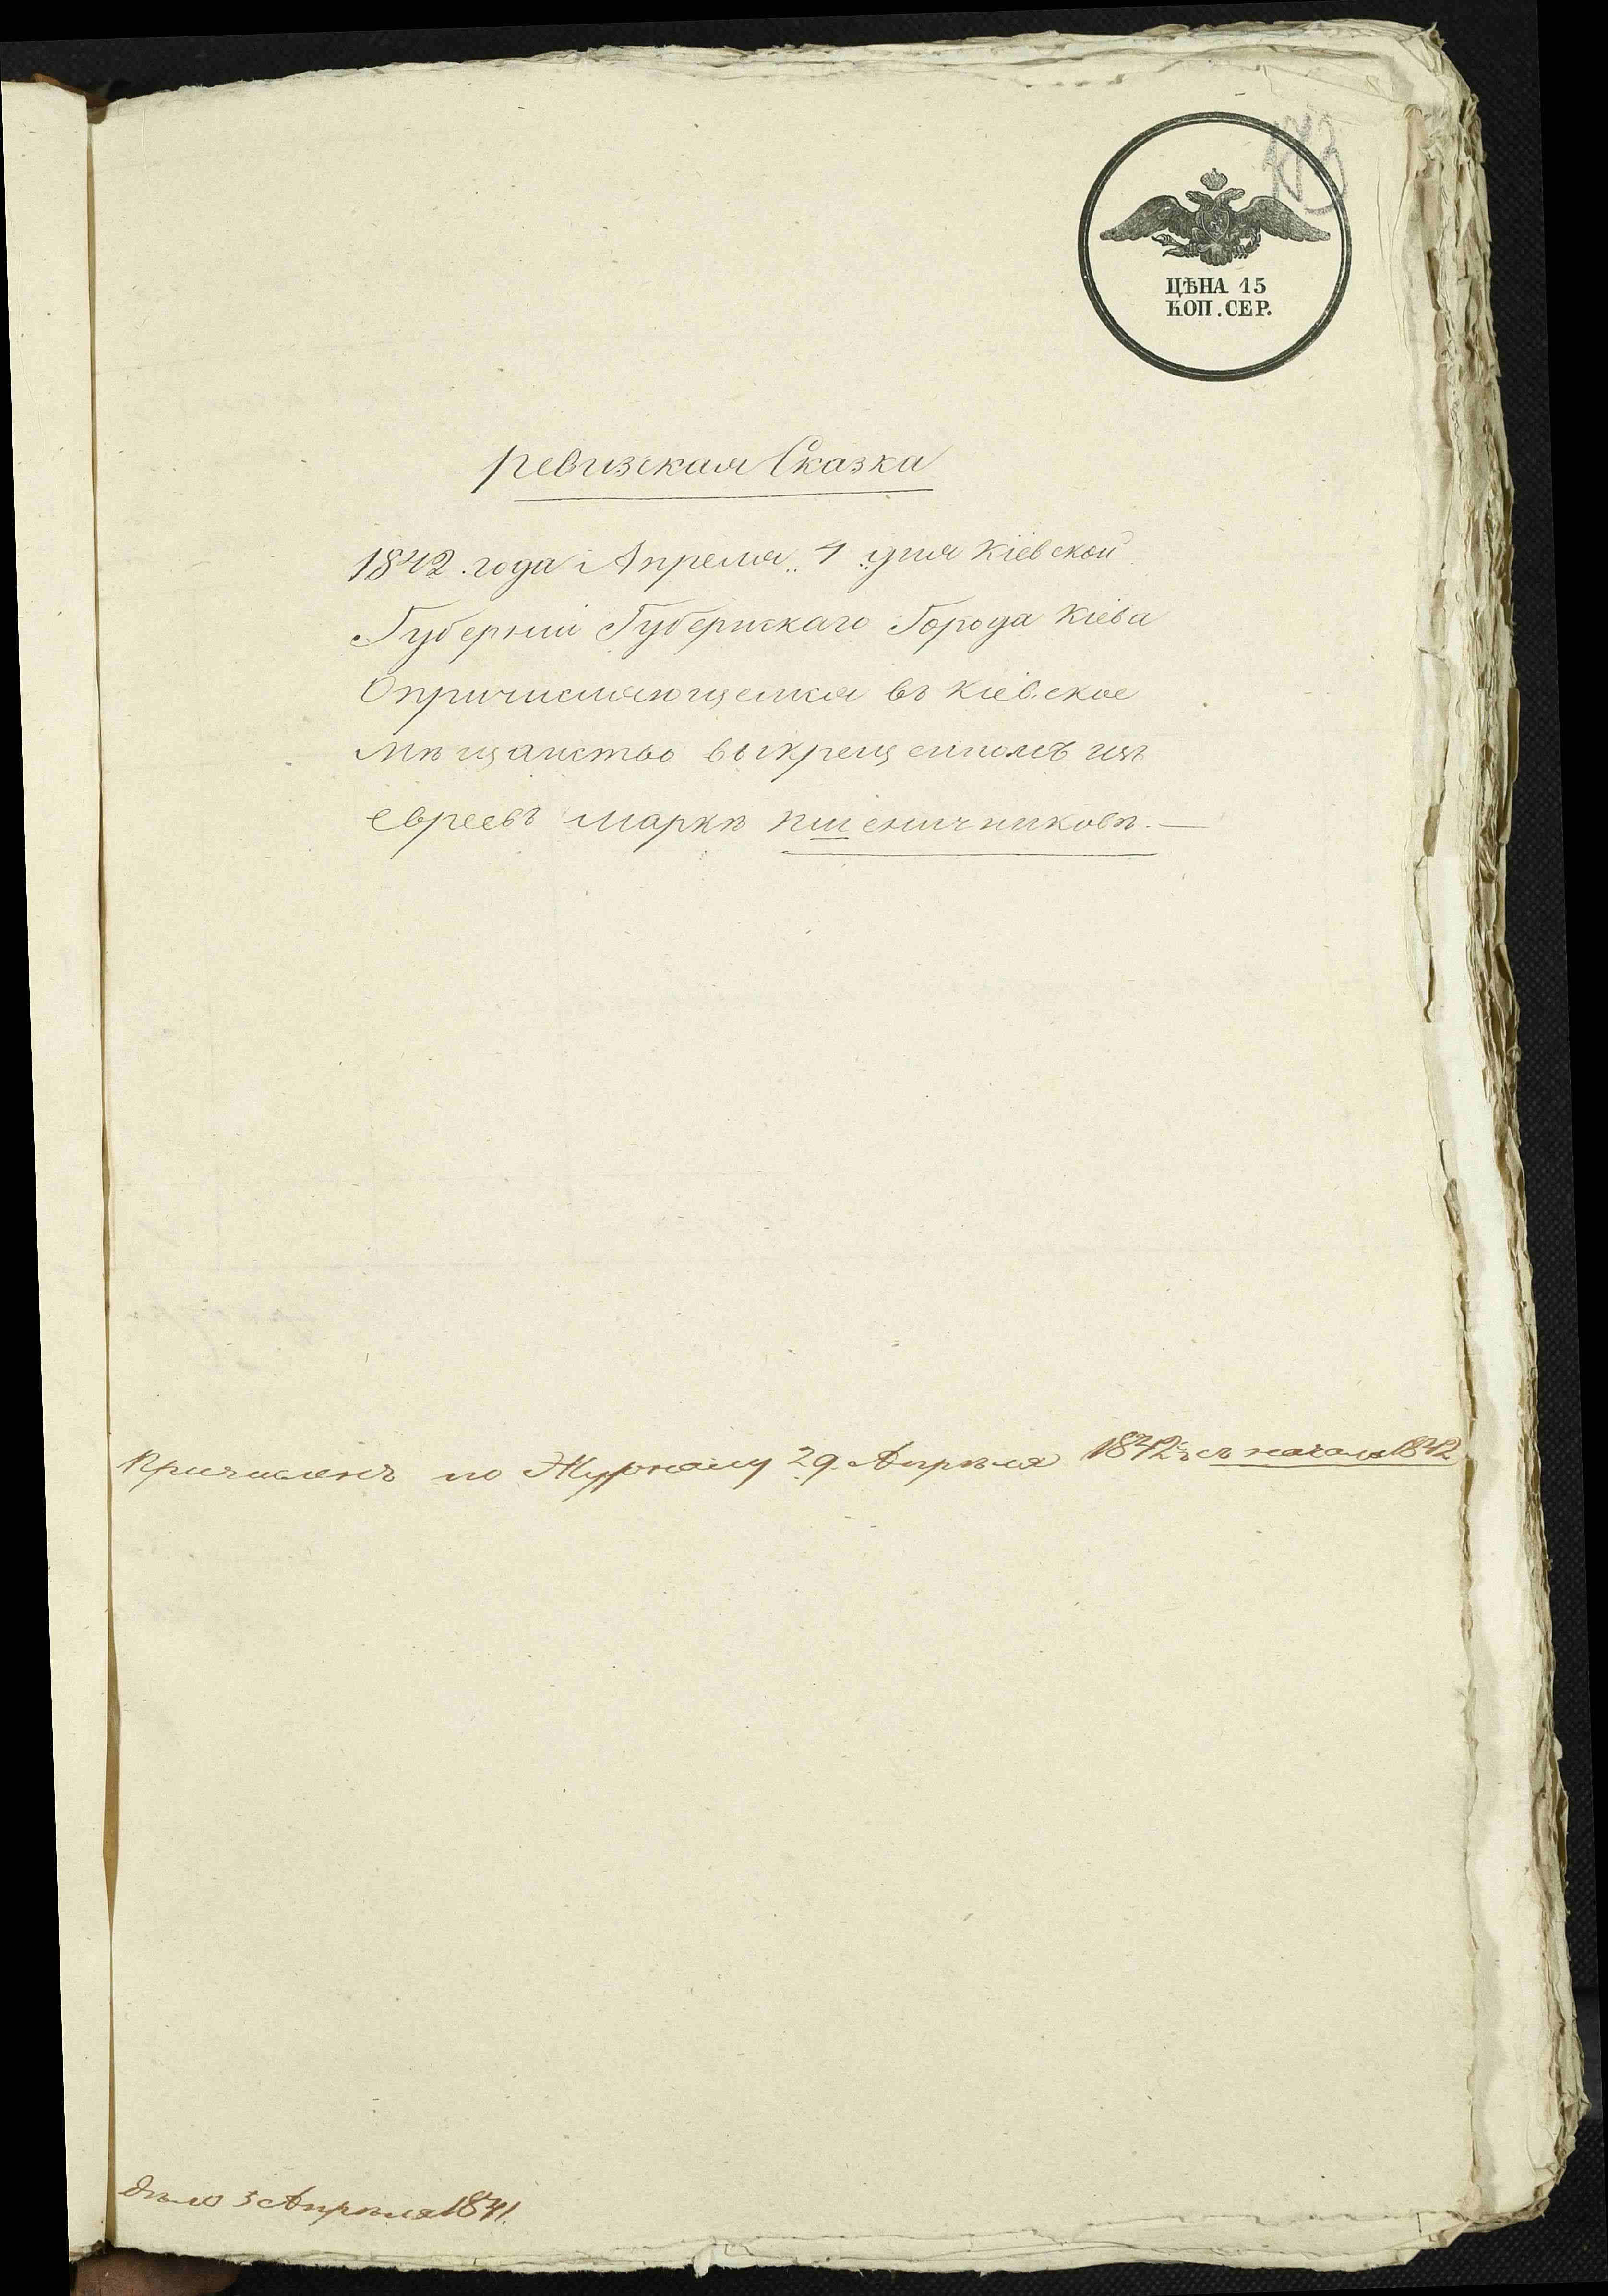 173
ЦѢНА 15
КОП. СЕР.
Ревизская Сказка
1842 года Апреля 4 дня Кіевской
Губерніи Губернскаго Города Кіева
О причисляющемся въ Кіевское
мѣщанство выкрещенномъ изъ
евреевъ Маркѣ Пшеничниковѣ. —
Причисленъ по Журналу 29 Апрѣля 1842 г. съ начала 1842
Дѣло 3 Апрѣля 1841.